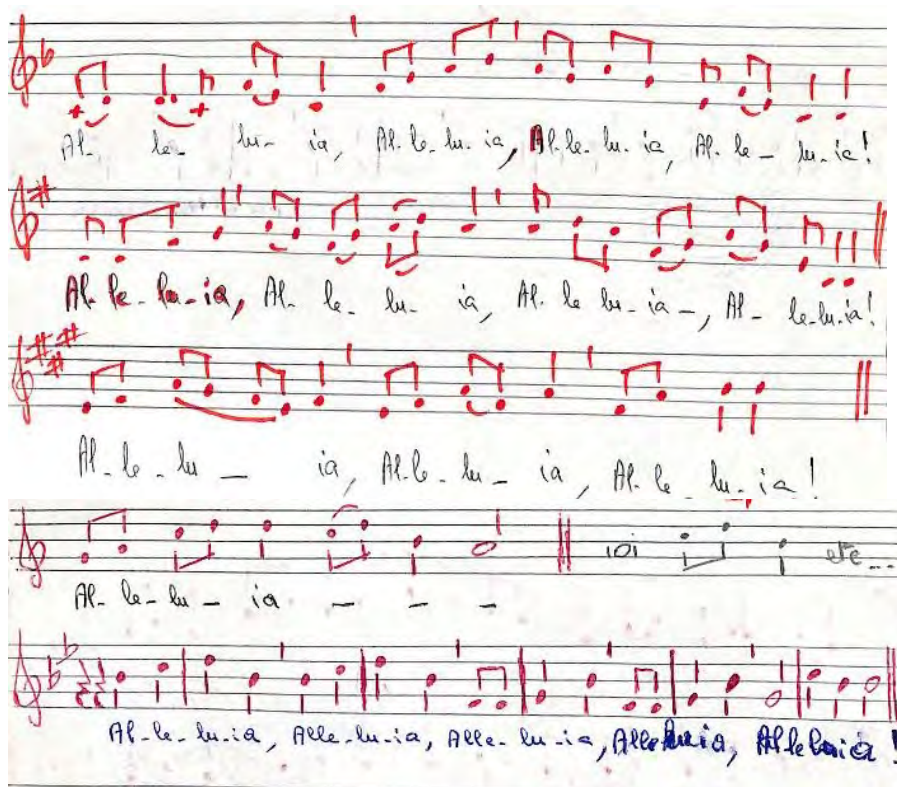 Al- le- lu- ia, Al-le-lu-ia, Al-le-lu-ia, Al-le-lu-ia!
Al-le-lu-ia, Al- le- lu- ia, Al-le lu-ia-, Al- le-lu-ia!
Al-le-lu- ia, Al-le-lu-ia, Al-le lu-ia!
etc...
Al-le-lu-ia - - -
Al-le-lu-ia, Alle-lu-ia, Alle-lu-ia, Alleluia, Alleluia!